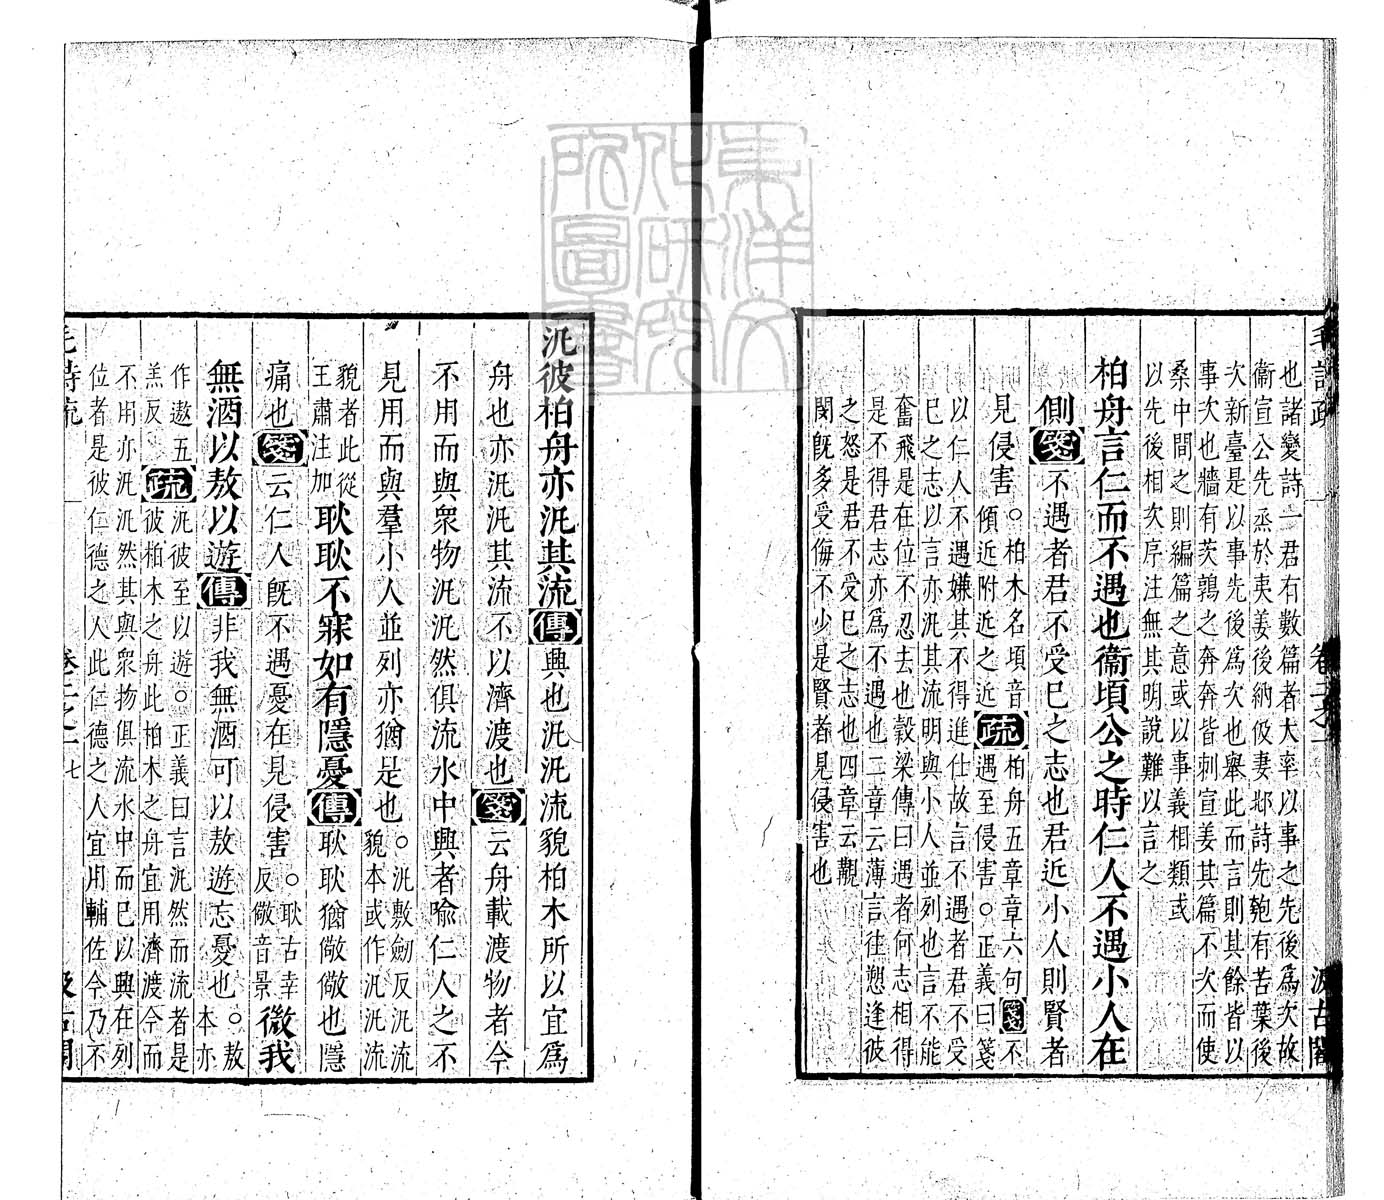 也諸變詩一君有數篇者大率以事之先後爲次故
衞宣公先烝於夷姜後納伋妻邶詩先匏有苦葉後
次新臺是以事先後爲次也舉此而言則其餘皆以
事次也牆有茨鶉之奔奔皆刺宣姜其篇不次而使
桑中間之則編篇之意或以事義相類或
以先後相次序注無其明說難以言之
柏舟言仁而不遇也衞頃公之時仁人不遇小人在
側箋不遇者君不受已之志也君近小人則賢者
見侵害。柏木名頃音
傾近附近之近疏柏舟五章章六句箋不
遇至侵害。正義曰箋
以仁人不遇嫌其不得進仕故言不遇者君不受
已之志以言亦汎其流明與小人並列也言不能
奮飛是在位不忍去也穀梁傳曰遇者何志相得
是不得君志亦爲不遇也二章云薄言往愬逢彼
之怒是君不受已之志也四章云覯
閔旣多受侮不少是賢者見侵害也
汎彼柏舟亦汎其流傳興也汎汎流貌柏木所以宜爲
舟也亦汎汎其流不以濟渡也箋云舟載渡物者今
不用而與衆物汎汎然俱流水中興者喻仁人之不
見用而與羣小人並列亦猶是也。汎敷劒反汎流
貌本或作汎汎流
貌者此從
王肅注加耿耿不寐如有隱憂傳耿耿猶儆儆也隱
痛也箋云仁人旣不遇憂在見侵害。耿古幸
反儆音景微我
無酒以敖以遊傳非我無酒可以敖遊忘憂也。敖
本亦
作遨五
羔反疏汎彼至以遊。正義曰言汎然而流者是
彼柏木之舟此柏木之舟宜用濟渡今而
不用亦汎汎然其與衆物俱流水中而已以興在列
位者是彼仁德之人此仁德之人宜用輔佐今乃不